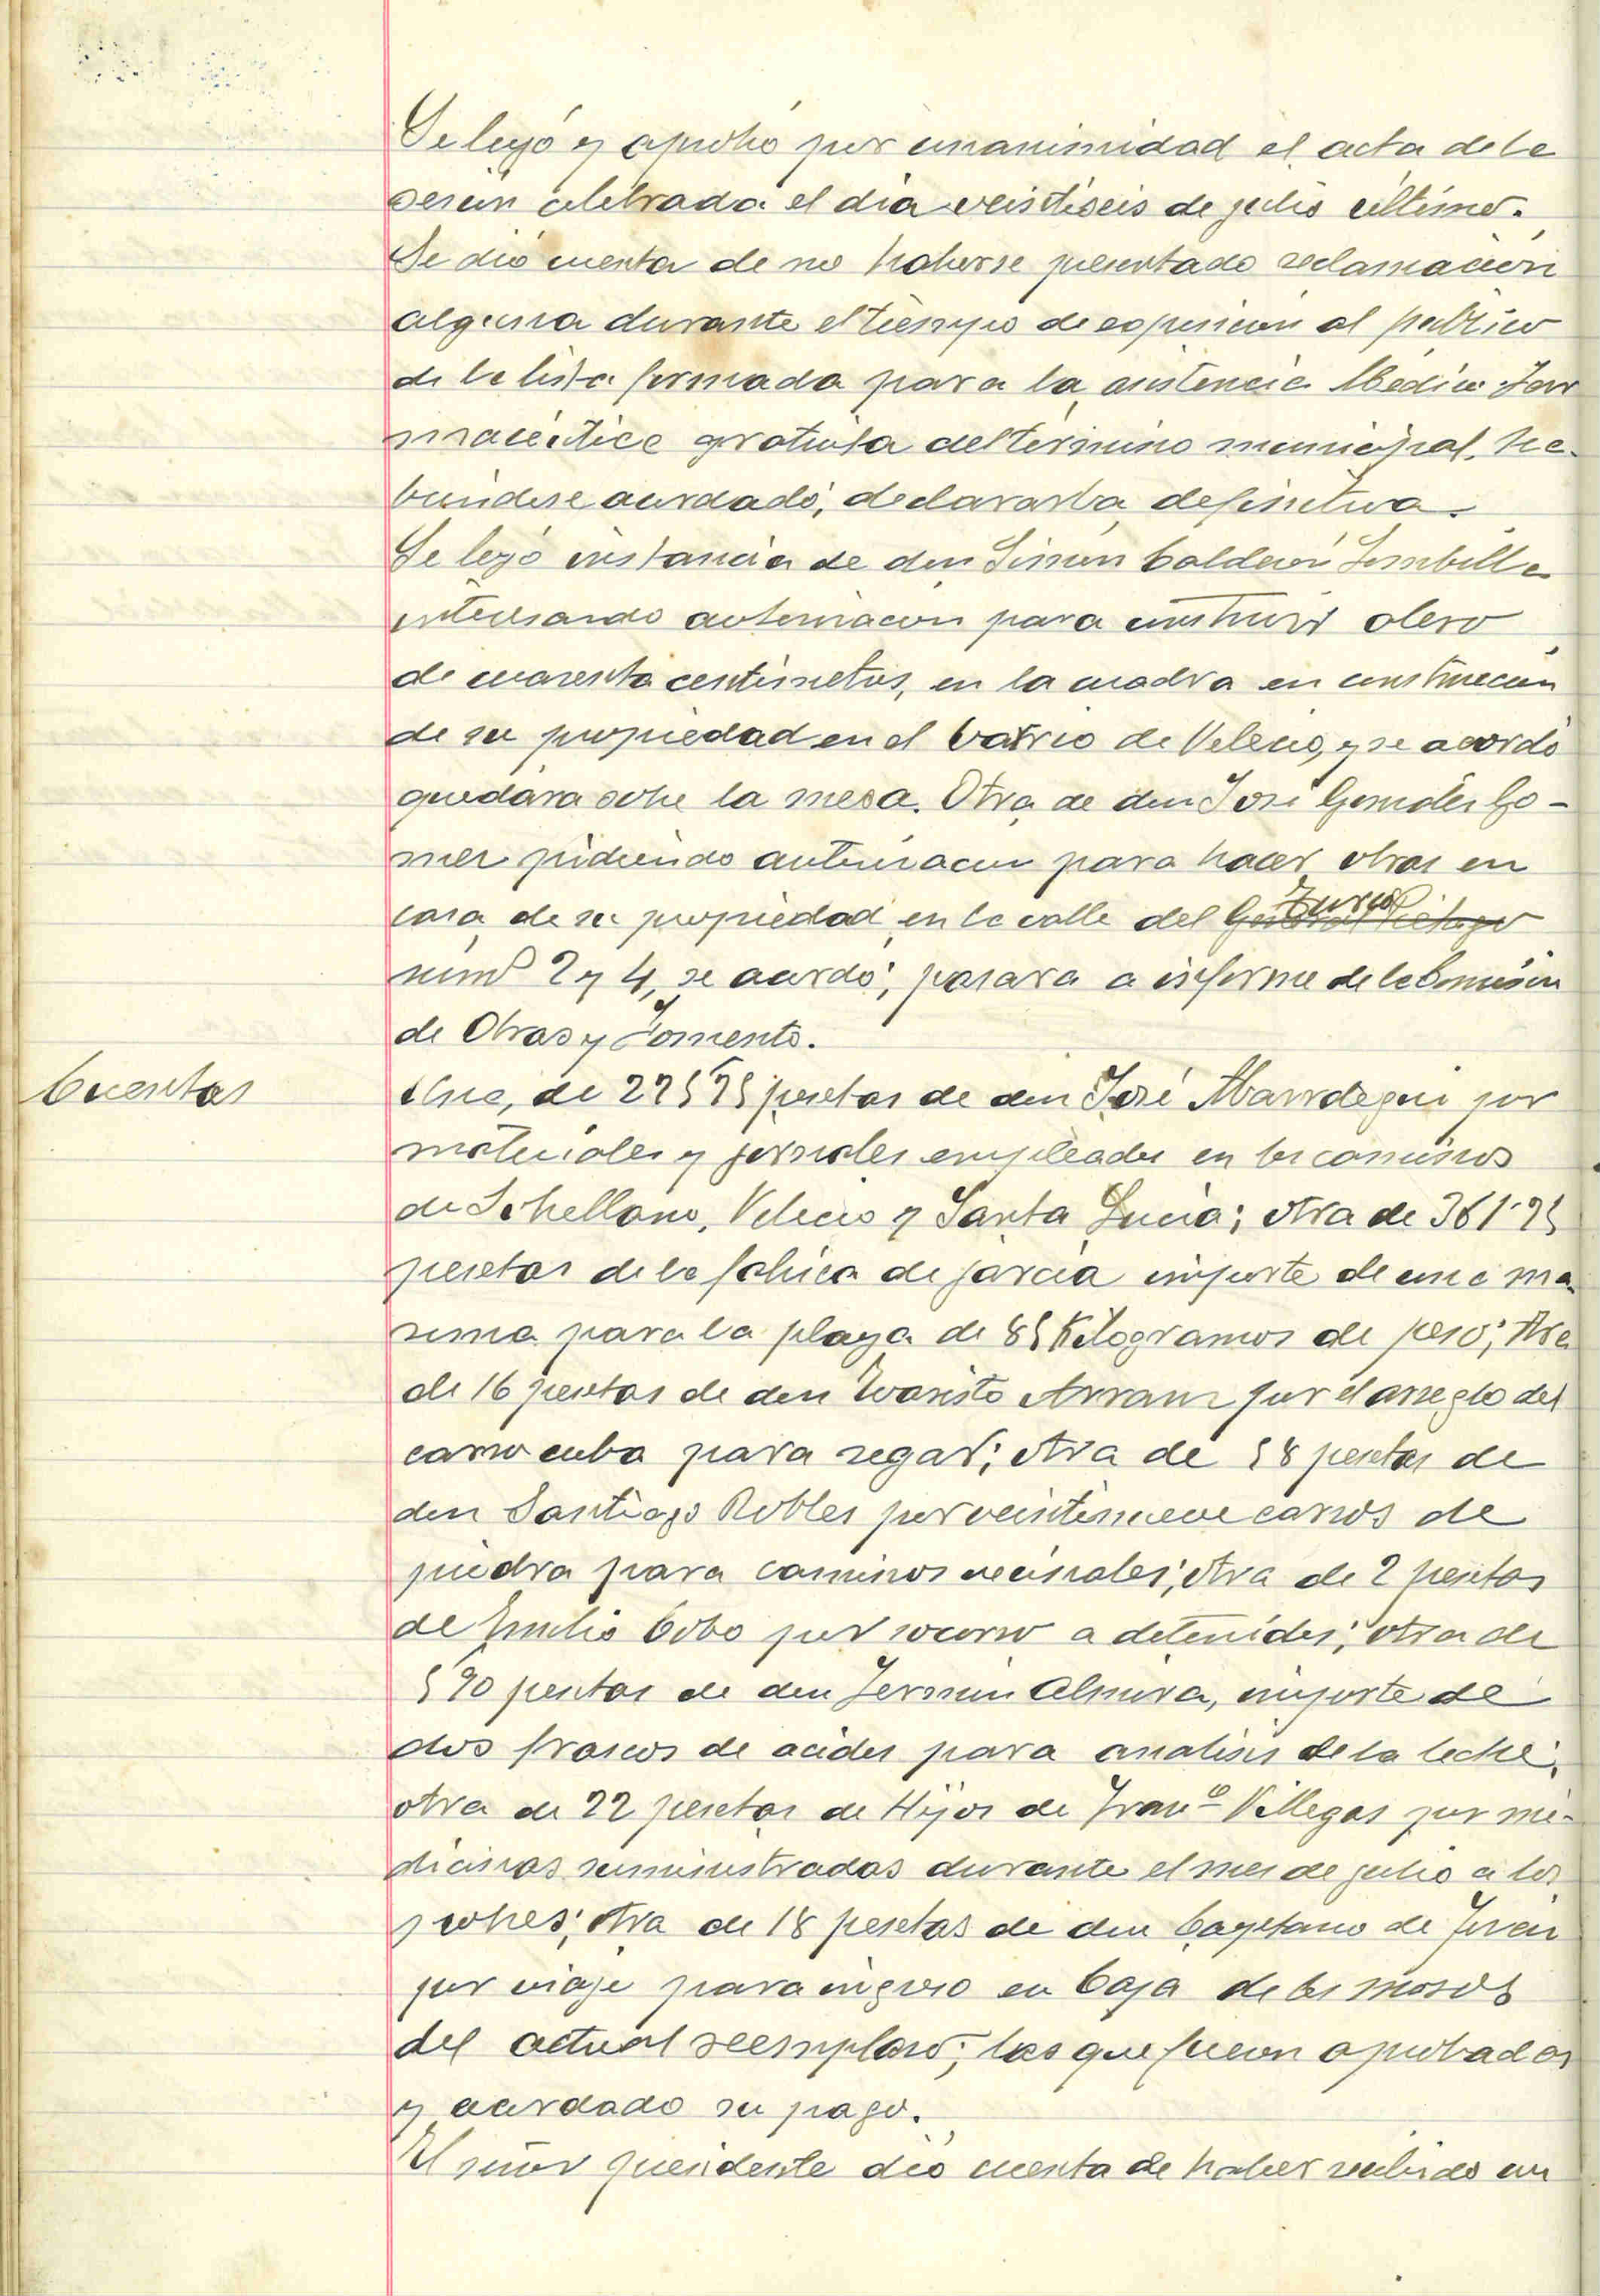 Se leyó y aprobó por unanimidad el acta de la
sesión celebrada el día veintiseis de julio último.
Se dió cuenta de no haberse presentado reclamación
alguna durante el tiempo de exposicion al publico
de la lista formada para la asistencia Médico Far
maceútica gratuita del término municipal, ha-
biendose acordado, declararla definitiva.
Se leyó instancia de don Simón Calderón
interesando autorizacion para construir alero
de cuarenta centimetros, en la cuadra en construccion
de su propiedad en el barrio de Velecio, y se acordó
quedara sobre la mesa. Otra de don José González Gó-
mez pidiendo autorizacion para hacer obras en
casa de su propiedad en la calle del Turco
núms 2 y 4, se acordó, pasara a informe de la Comisión
de Obras y Fomento.
Cuentas
Una, de 275'75 pesetas de don José Marrodegui por
materiales y jornales empleados en los caminos
de Tobellano, Velecio y Santa Lucia; otra de 361'25
pesetas de la fabrica de jarcia importe de una ma-
roma para la playa de 85 Kilogramos de peso; otra
de 16 pesetas de don Evaristo Arranz por el arreglo del
carro cuba para regar; otra de 58 pesetas de
don Santiago Robles por veintinueve carros de
piedra para caminos vecinales; otra de 2 pesetas
de Emilio Cobo por socorro a detenidos; otra de
5'90 pesetas de don Fermin Almira, importe de
dos frascos de acidos para analisis de la leche;
otra de 22 pesetas de Hijos de Franco Villegas por me-
dicinas suministradas durante el mes de julio a los
pobres; otra de 18 pesetas de don Cayetano de
por viaje para ingreso en Caja de los mozos
del actual reemplazo; las que fueron aprobadas
y acordado su pago.
El señor presidente dió cuenta de haber recibido un